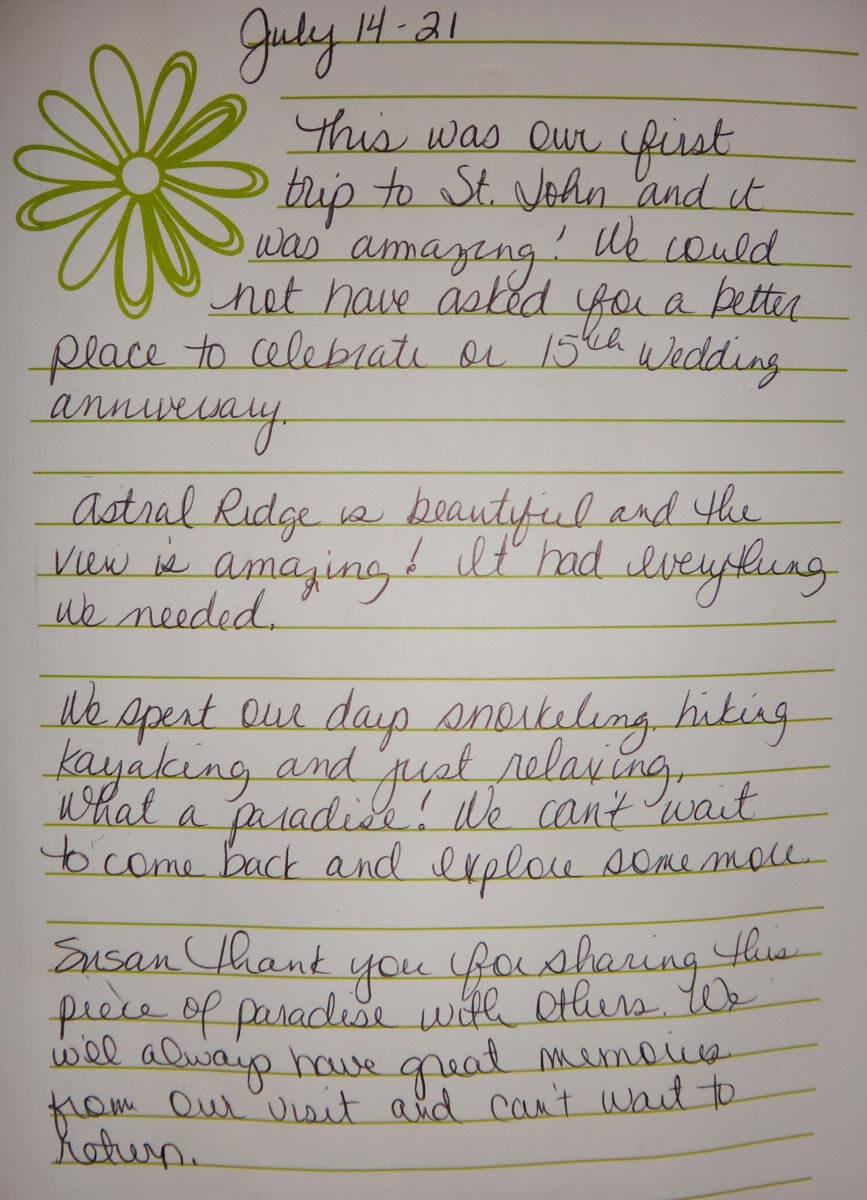 July 14-21
This was our first
trip to St. John and it
was amazing! We could
not have asked for a better
place to celebrate or 15th Wedding
anniversary.
Astral Ridge is beautiful and the
view is amazing! It had everything
we needed.
We spent our days snorkeling, hiking
kayaking and just relaxing,
What a paradise! We can't wait
to come back and explore some more.
Susan Thank you for sharing this
piece of paradise with others. We
will always have great memories
from our visit and can't wait to
return.